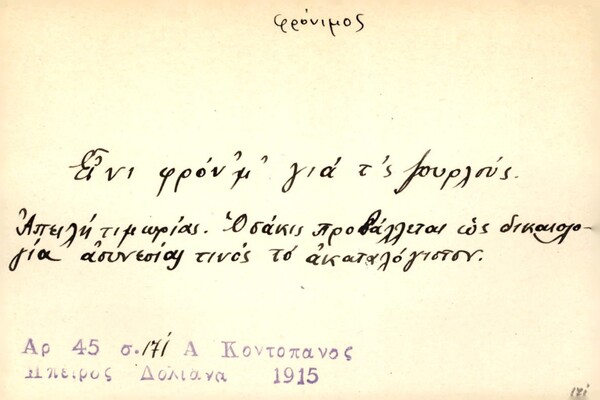 φρόνιμος
Εἶνι φρόν'μ' γιά τ'ς μουρλούς.
Ἀπειλή τιμωρίας. Ὁσάκις προβάλλεται ὡς δικαιολο-
γία ἀσυνεσίας τινός τό ἀκαταλόγιστον.
Αρ 45 σ. 171 Α Κοντοπανος
Ηπειρος Δολιανα 1915
171